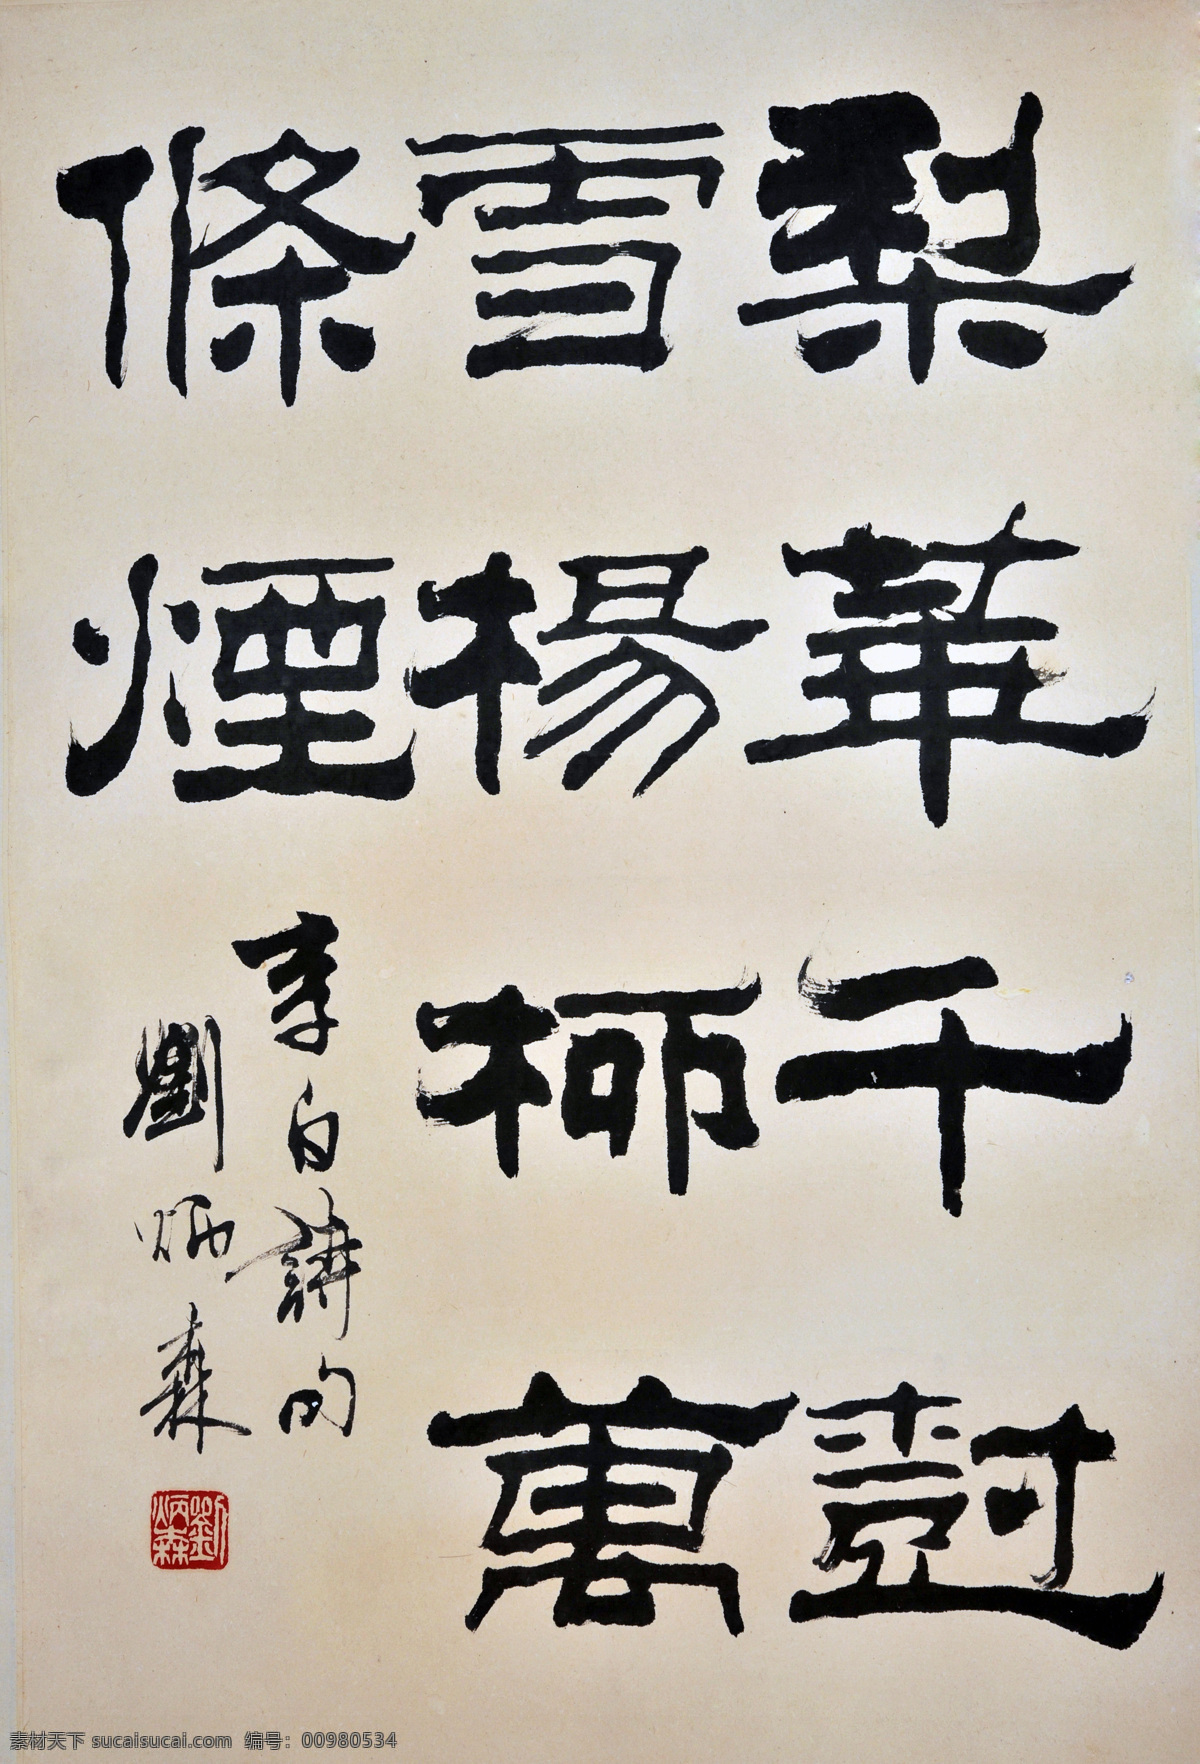 梨華千樹
雪楊柳萬
條煙
李白詩句
劉炳森
劉炳森
素材天下 sucaisucai.com 编号：00980534